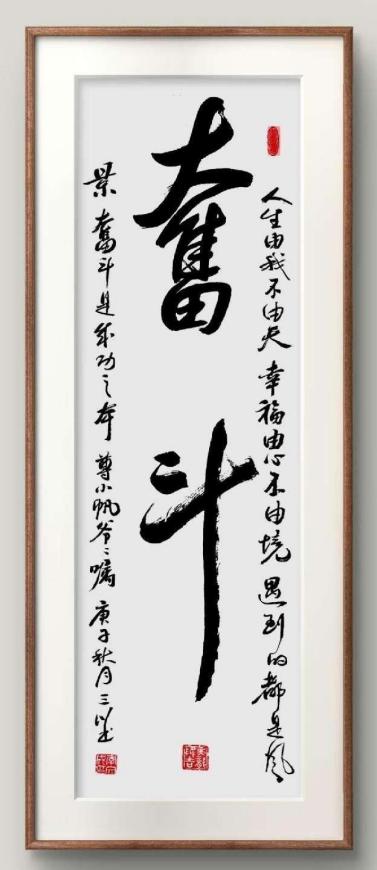 奮斗
人生由我不由天 幸福由心不由境 遇到的都是風
景 奮斗是成功之本 尊小帆爷爷嘱 庚子秋月 三